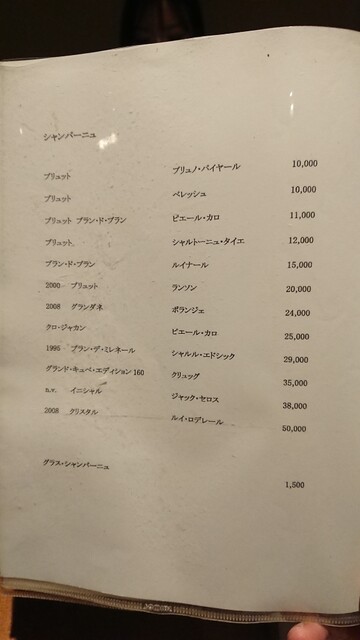 シャンパーニュ
ブリュット ブリュノ・パイヤール 10,000
ブリュット ペレッシュ 10,000
ブリュット ブラン・ド・ブラン ピエール・カロ 11,000
ブリュット シャルトーニュ・タイエ 12,000
ブラン・ド・ブラン ルイナール 15,000
2000 ブリュット ランソン 20,000
2008 グランダネ ボランジェ 24,000
クロ・ジャカン ピエール・カロ 25,000
1995 ブラン・デ・ミレネール シャルル・エドシック 29,000
グランド・キュベ・エディション 160 クリュッグ 35,000
n.v. イニシャル ジャック・セロス 38,000
2008 クリスタル ルイ・ロデレール 50,000
グラス・シャンパーニュ 1,500